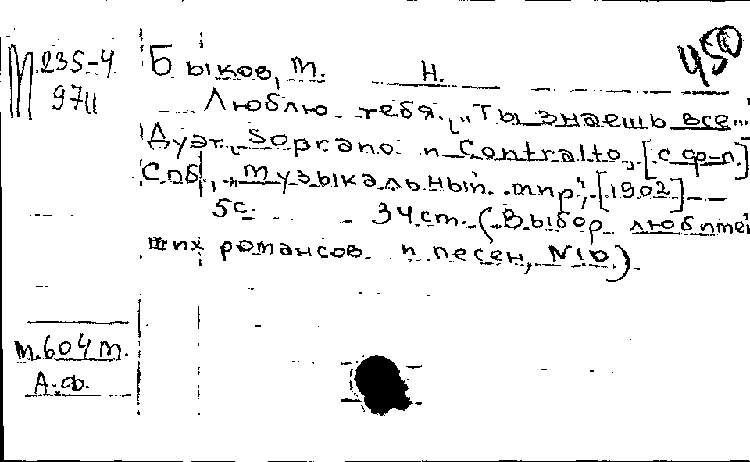 М 235-4
971
450
Быков, М. Н.
Люблю тебя. „Ты знаешь все..."
Дуэт. Soprano и Contralto, [с ф-п.]
Спб, „Музыкальный мир", [1902]
5с. 34 cm. (Выбор любимей
ших романсов и песен, №10)
м.604 м.
А.Ф.